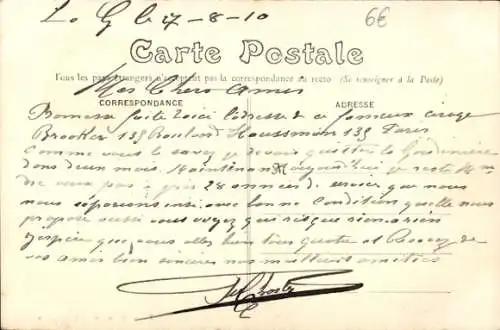 La G le 27-8-10
6€
Carte Postale
Tous les pays étrangers n'acceptent pas la correspondance au recto (Se renseigner à la Poste)
Mes Chers Amis
CORRESPONDANCE
ADRESSE
Promesse faite voici l'adresse de ce fameux cirage
Brooker 135 Boulevard Haussmann 135 Paris
Comme vous le savez je devais quitter la
dans deux mois. Maintenant aujourd'hui je reste Mme
ne veux pas après 28 années de service que nous
nous séparions ainsi avec bonne Condition quelle nous
propose aussi vous voyez que risque rien à rien
J'espère que vous allez bien tous quatre et Recevez de
vos amis bien sincères nos meilleurs amitiés